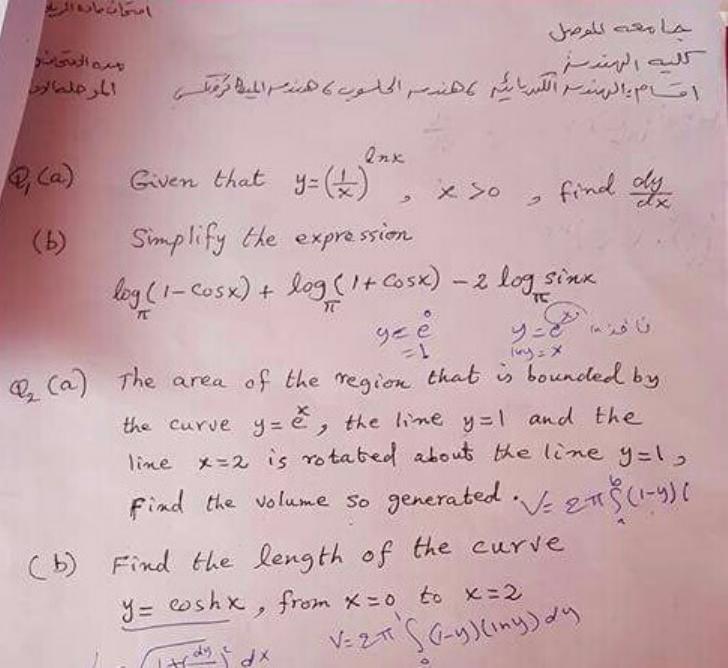 امتحان مادة الريا
جامعة الموصل
كلية الهندسة
مدة الامتحان
اقسام الهندسة الكهربائية، هندسة الحاسوب، هندسة الميكاترونكس
Q1 (a) Given that y=(1/x)^lnx , x>0 , find dy/dx
(b) Simplify the expression
log_π(1-cosx) + log_π(1+cosx) - 2 log_π sinx
y = e^0 y=e^x
=1 lny=x
Q2 (a) The area of the region that is bounded by
the curve y=e^x, the line y=1 and the
line x=2 is rotated about the line y=1,
Find the volume so generated. V=2π∫_a^b(1-y)(
(b) Find the length of the curve
y=coshx, from x=0 to x=2
V=2π∫_0^1(1-y)(lny)dy
√1+(dy)^2 dx